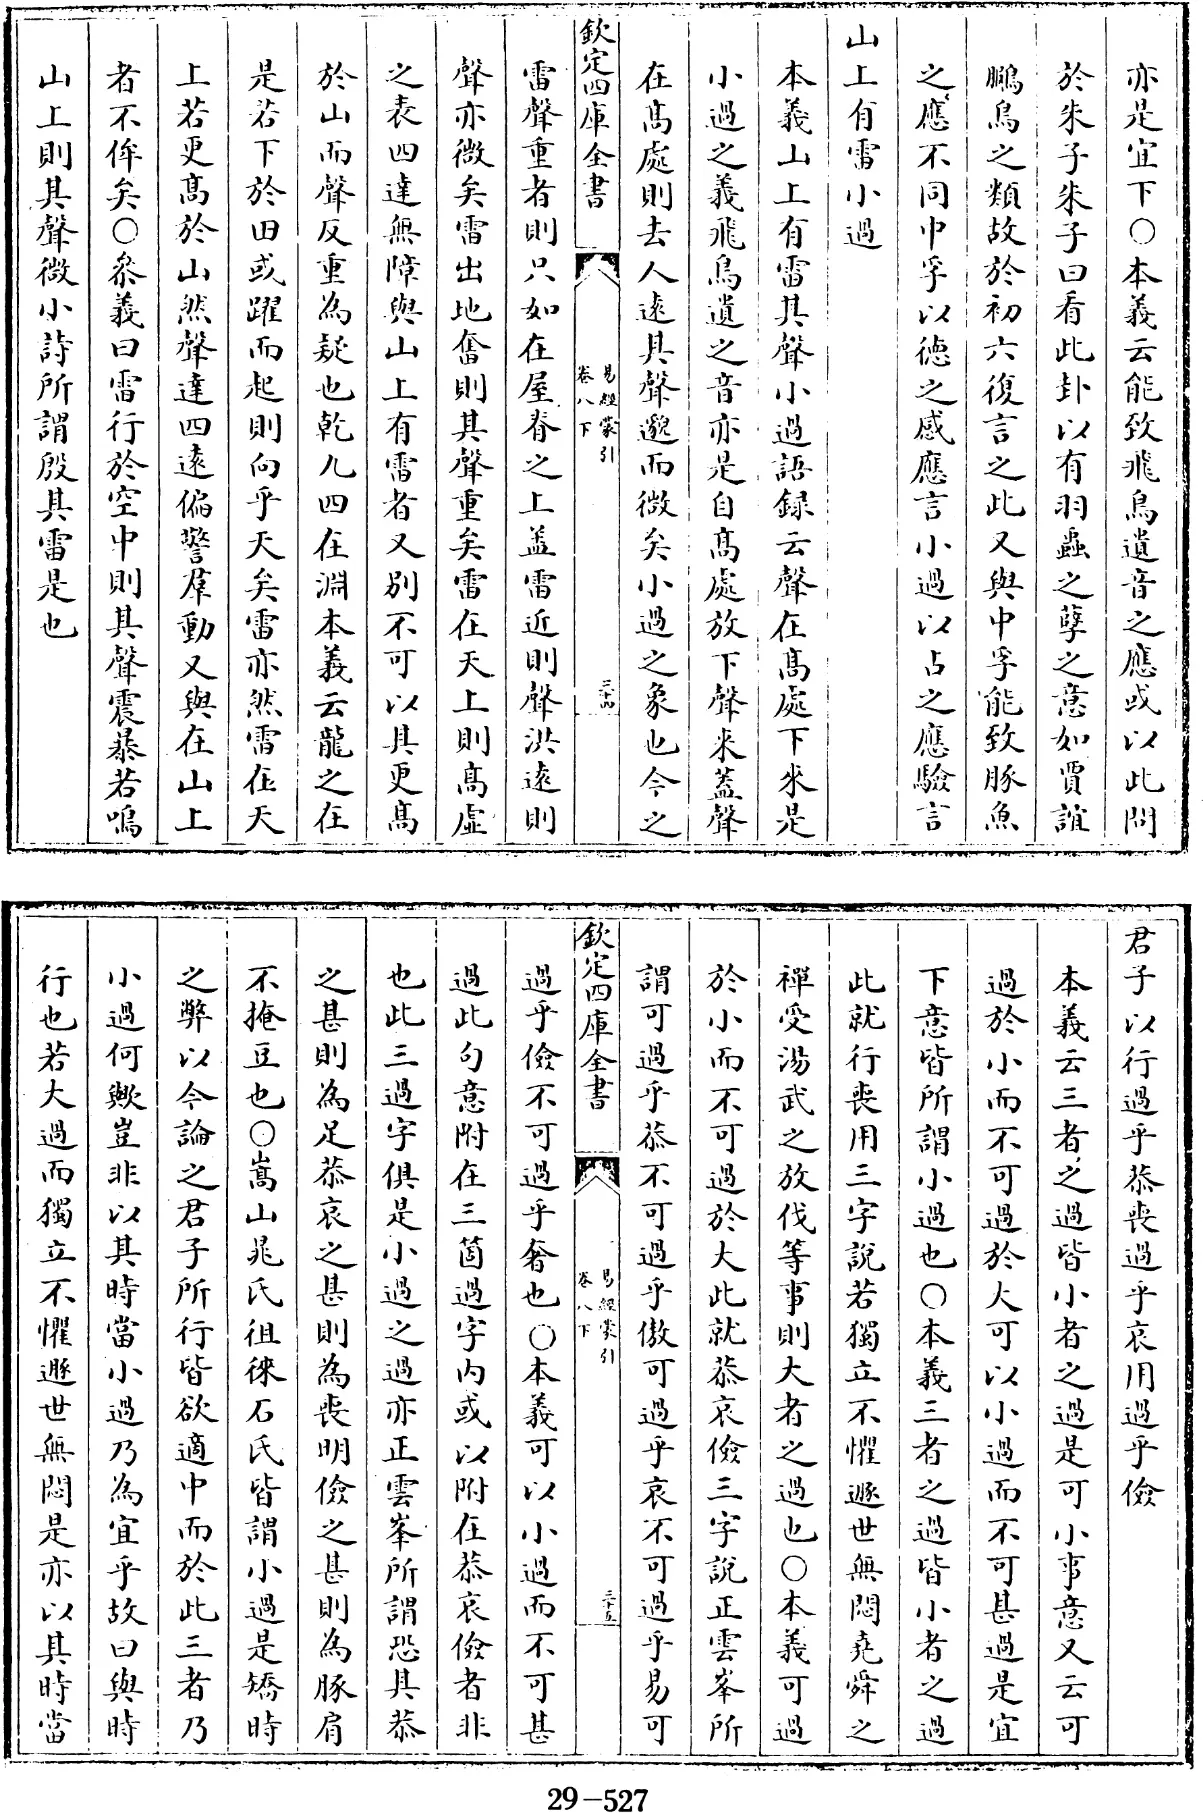 亦是宜下○本義云能致飛鳥遺音之應或以此問
於朱子朱子曰看此卦以有羽蟲之孽之意如賈誼
鵩鳥之類故於初六復言之此又與中孚能致豚魚
之應不同中孚以德之感應言小過以占之應驗言
山上有雷小過
本義山上有雷其聲小過語録云聲在髙處下來是
小過之義飛鳥遺之音亦是自髙處放下聲來蓋聲
在髙處則去人逺其聲邈而微矣小過之象也今之
欽定四庫全書
易經蒙引
卷八下
三十四
雷聲重者則只如在屋脊之上盖雷近則聲洪逺則
聲亦微矣雷出地奮則其聲重矣雷在天上則髙虛
之表四達無障與山上有雷者又別不可以其更髙
於山而聲反重為疑也乾九四在淵本義云龍之在
是若下於田或躍而起則向乎天矣雷亦然雷在天
上若更髙於山然聲達四逺徧警羣動又與在山上
者不侔矣○叅義曰雷行於空中則其聲震暴若鳴
山上則其聲微小詩所謂殷其雷是也
君子以行過乎恭喪過乎哀用過乎儉
本義云三者之過皆小者之過是可小事意又云可
過於小而不可過於大可以小過而不可甚過是宜
下意皆所謂小過也○本義三者之過皆小者之過
此就行喪用三字說若獨立不懼遯世無悶堯舜之
禪受湯武之放伐等事則大者之過也○本義可過
於小而不可過於大此就恭哀儉三字説正雲峯所
謂可過乎恭不可過乎傲可過乎哀不可過乎易可
欽定四庫全書
易經蒙引
卷八下
三十五
過乎儉不可過乎奢也○本義可以小過而不可甚
過此句意附在三箇過字内或以附在恭哀儉者非
也此三過字俱是小過之過亦正雲峯所謂恐其恭
之甚則為足恭哀之甚則為喪明儉之甚則為豚肩
不掩豆也○嵩山晁氏徂徠石氏皆謂小過是矯時
之弊以今論之君子所行皆欲適中而於此三者乃
小過何歟豈非以其時當小過乃為宜乎故曰與時
行也若大過而獨立不懼遯世無悶是亦以其時當
29-527